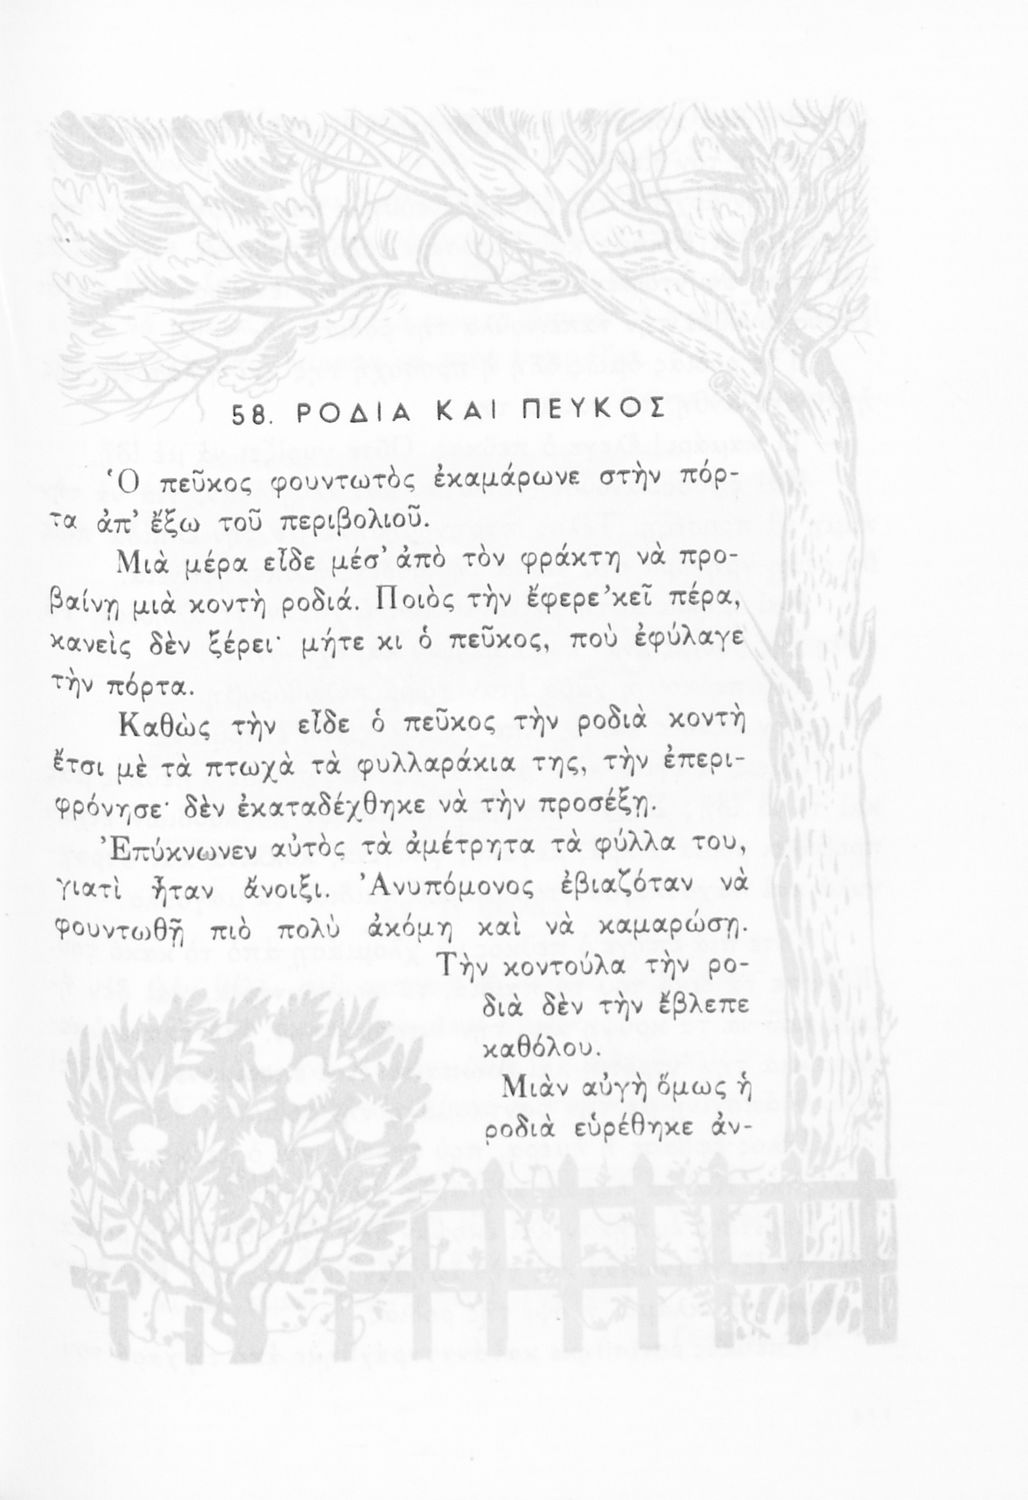 58. ΡΟΔΙΑ ΚΑΙ ΠΕΥΚΟΣ
Ὁ πεῦκος φουντωτὸς ἐκαμάρωνε στὴν πόρ-
τα ἀπ’ ἔξω τοῦ περιβολιοῦ.
Μιὰ μέρα εἶδε μέσ’ ἀπὸ τὸν φράκτη νὰ προ-
βαίνῃ μιὰ κοντὴ ροδιά. Ποιὸς τὴν ἔφερε ’κεῖ πέρα,
κανεὶς δὲν ξέρει· μήτε κι ὁ πεῦκος, ποὺ ἐφύλαγε
τὴν πόρτα.
Καθὼς τὴν εἶδε ὁ πεῦκος τὴν ροδιὰ κοντὴ
ἔτσι μὲ τὰ πτωχὰ τὰ φυλλαράκια της, τὴν ἐπερι-
φρόνησε· δὲν ἐκαταδέχθηκε νὰ τὴν προσέξῃ.
Ἐπύκνωνεν αὐτὸς τὰ ἀμέτρητα τὰ φύλλα του,
γιατὶ ἦταν ἄνοιξι. Ἀνυπόμονος ἐβιαζόταν νὰ
φουντωθῇ πιὸ πολὺ ἀκόμη καὶ νὰ καμαρώσῃ.
Τὴν κοντούλα τὴν ρο-
διὰ δὲν τὴν ἔβλεπε
καθόλου.
Μιὰν αὐγὴ ὅμως ἡ
ροδιὰ εὑρέθηκε ἀν-